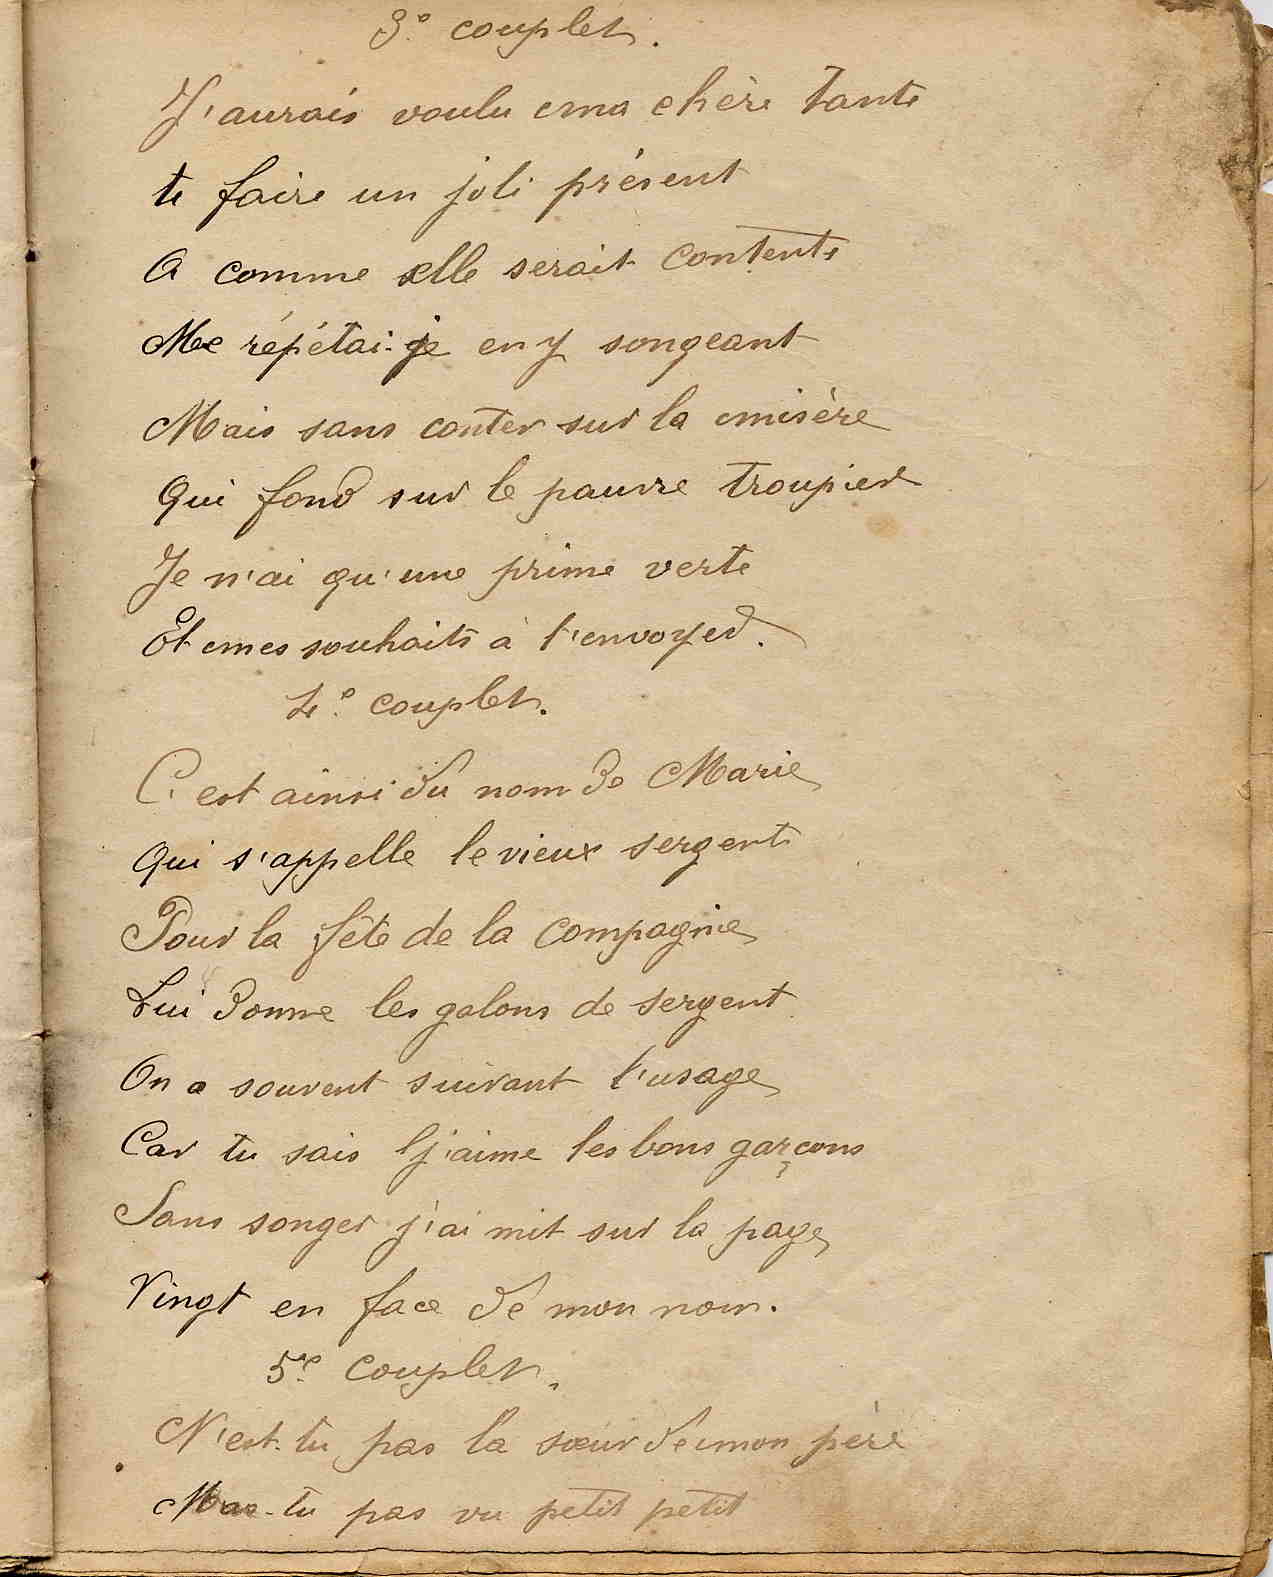 3e couplet.
J'aurais voulu ma chère tante
te faire un joli présent
A comme elle serait contente
Me répétai-je en y songeant
Mais sans conter sur la misère
Qui fond sur le pauvre troupier
Je n'ai qu'une prime verte
Et mes souhaits à t'envoyer.
4e couplet.
C'est ainsi du nom de Marie
Qui s'appelle le vieux sergent
Pour la fête de la compagnie
Lui donne les galons de sergent
On a souvent suivant l'usage
Car tu sais j'aime les bons garçons
Sans songer j'ai mit sur la page
Vingt en face de mon nom.
5e couplet.
N'est-tu pas la sœur de mon père
M'as-tu pas vu petit petit